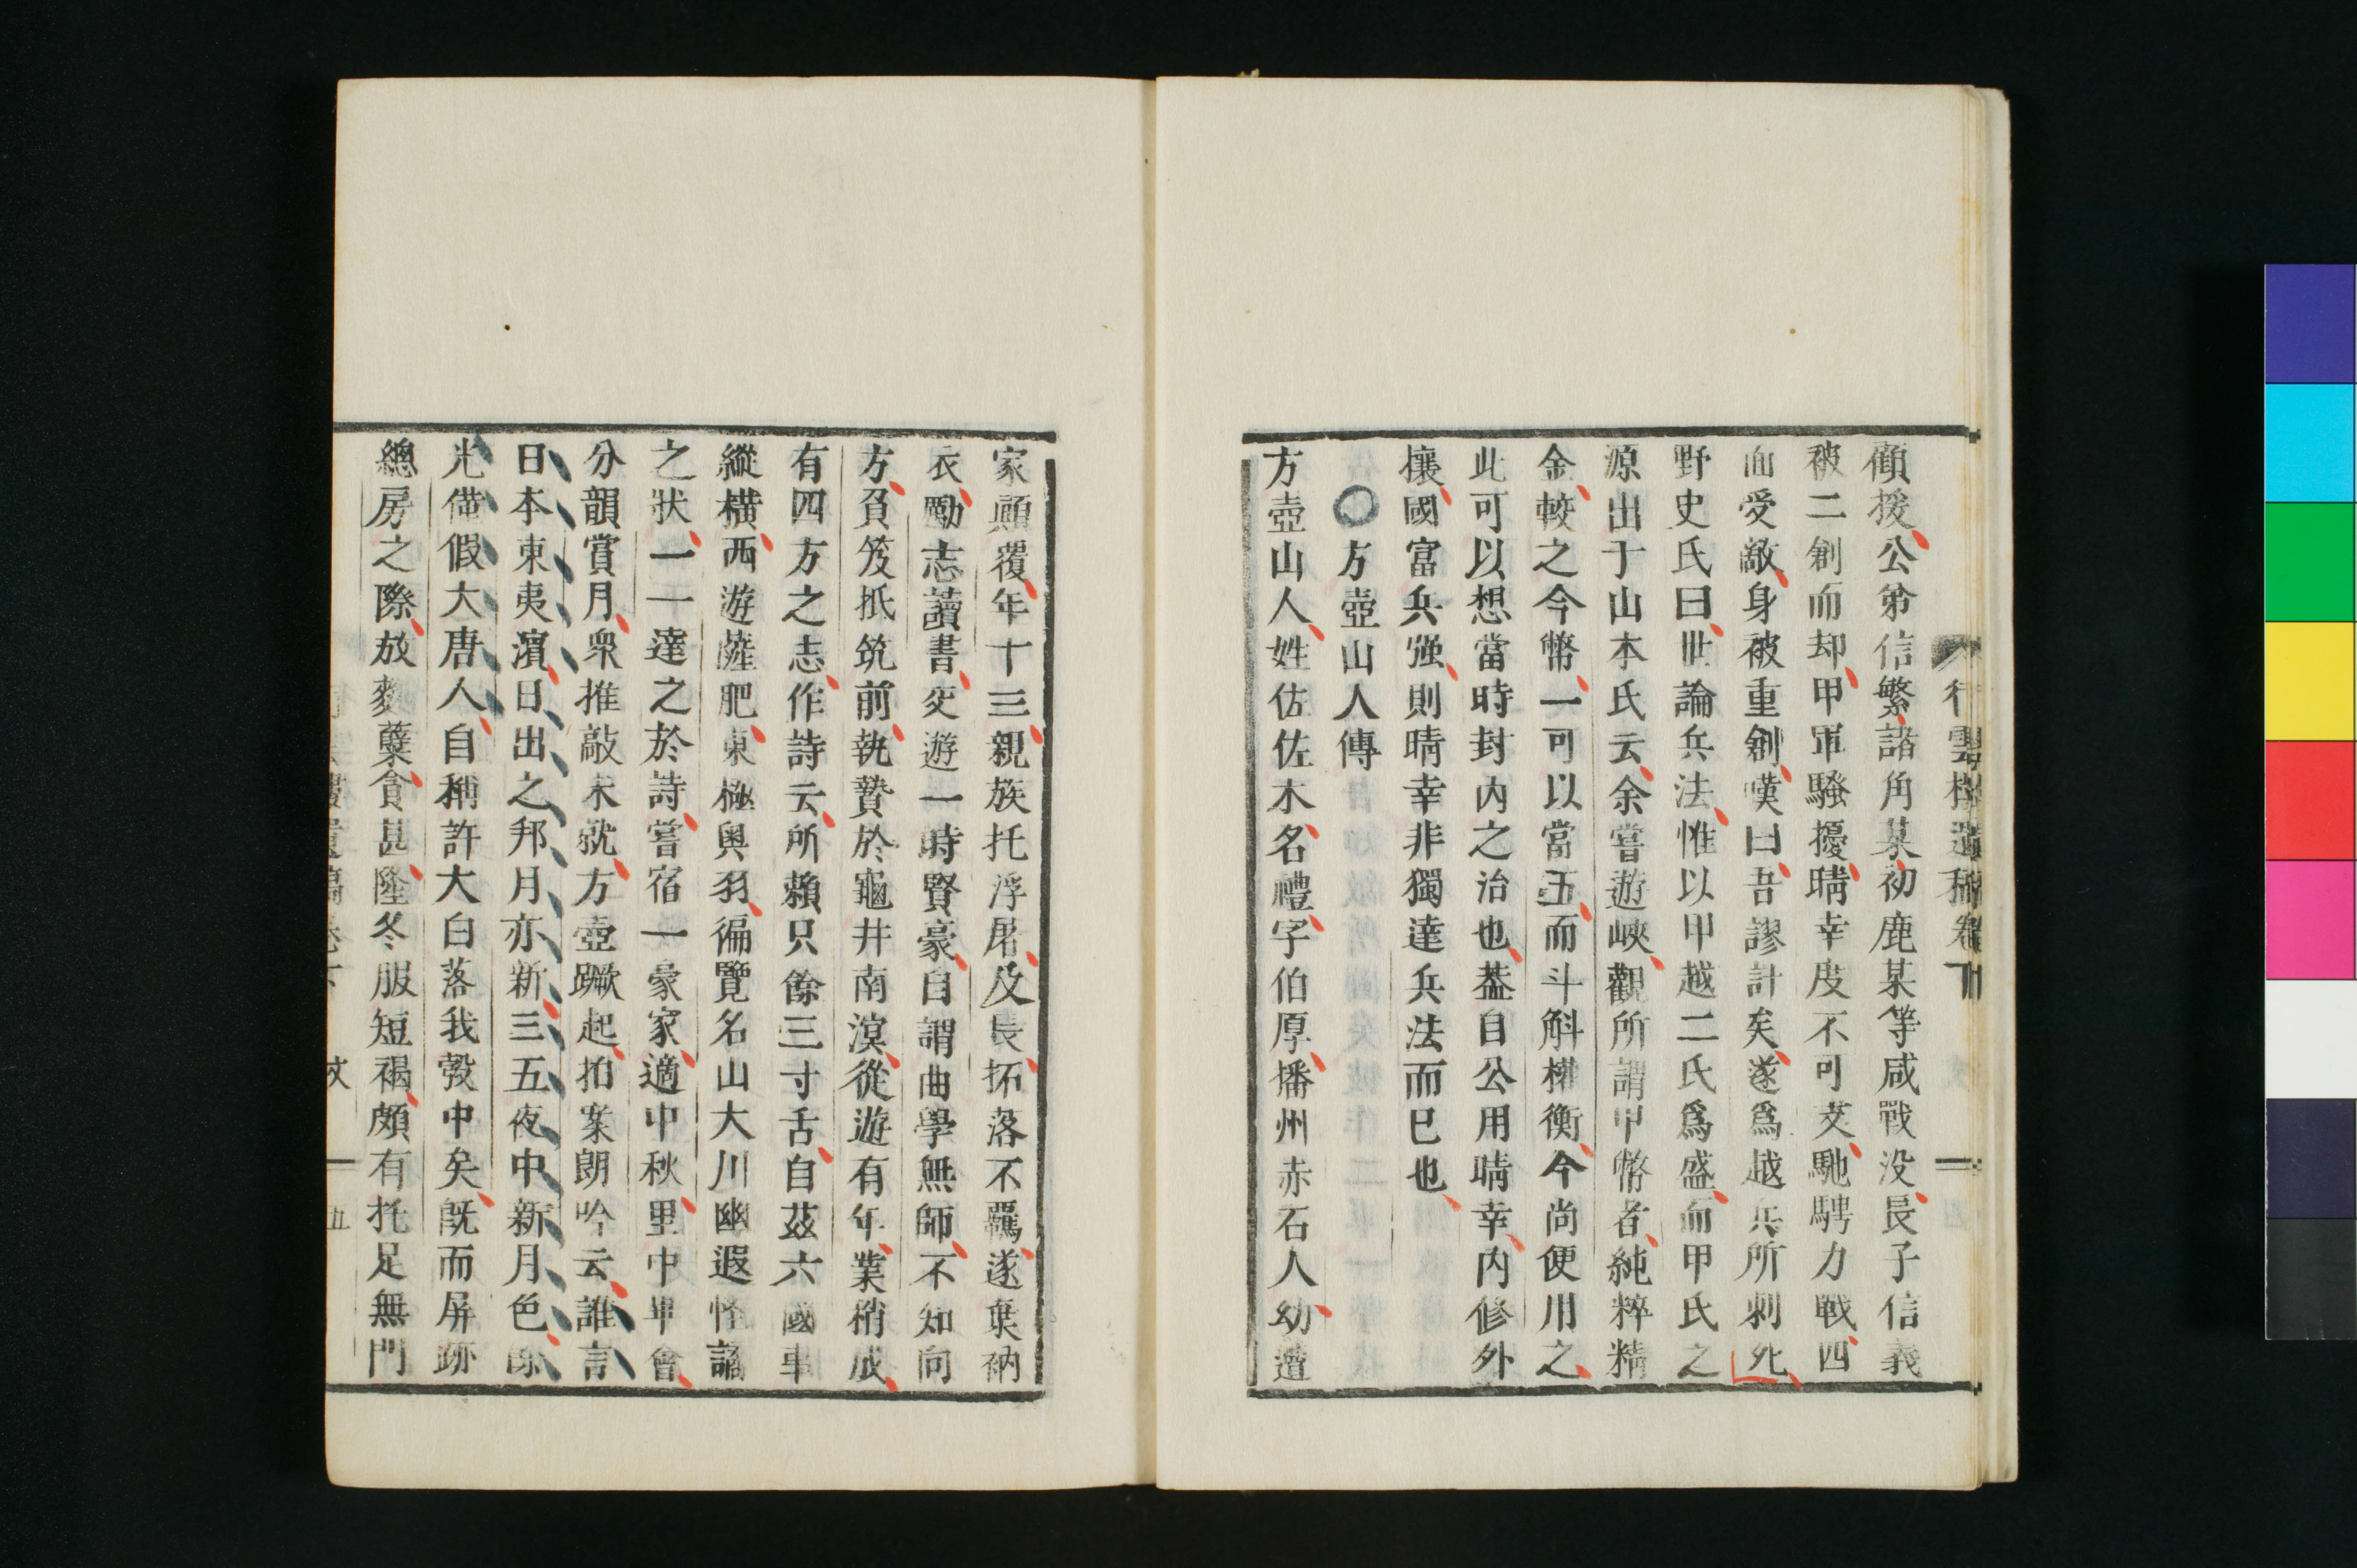 行雲樓遺稿卷下
顧援公弟信繁諸角某初鹿某等咸戰没長子信義
被二創而却甲軍騷擾晴幸度不可支馳騁力戰四
面受敵身被重創嘆曰吾謬計矣遂爲越兵所刺死
野史氏曰世論兵法惟以甲越二氏爲盛而甲氏之
源出于山本氏云余嘗遊峽觀所謂甲幣者純粹精
金較之今幣一可以當五而斗斛權衡今尚便用之
此可以想當時封内之治也葢自公用晴幸内修外
攘國富兵强則晴幸非獨達兵法而已也
〇方壺山人傳
方壺山人姓佐佐木名禮字伯厚播州赤石人幼遭
家顚覆年十三親族托浮屠及長拓落不羈遂棄衲
衣勵志讀書交遊一時賢豪自謂曲學無師不知向
方負笈抵筑前執贄於龜井南溟從遊有年業稍成
有四方之志作詩云所賴只餘三寸舌自茲六國事
縱橫西游薩肥東極奥羽徧覽名山大川幽遐怪譎
之狀一一達之於詩嘗宿一豪家適中秋里中畢會
分韻賞月衆推敲未就方壺蹶起拍案朗吟云誰言
日本東夷濱日出之邦月亦新三五夜中新月色餘
光僅假大唐人自稱許大白落我彀中矣既而屏跡
總房之際放麴蘗貪甚隆冬服短褐頗有托足無門
文
一
五